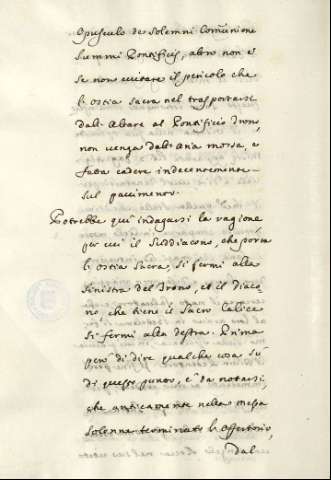 Opuscolo de Solemni Com̃unione
Summi Pontificis, altro non è
se non evitare il pericolo che
l'ostia sacra nel trasportarsi
dall'Altare al Pontificio Trono,
non venga dall'Aria mossa, e
fatta cadere indecentemente
sul pavimento.
Potrebbe quì indagarsi la ragione
per cui il Suddiacono, che porta
l'ostia Sacra, si fermi alla
sinistra del Trono, et il diaco
no, che tiene il Sacro Calice
si fermi alla destra. Prima
però di dire qualche cosa sù
di questo punto, è da notarsi,
che anticamente nella messa
solenne terminato l'offertorio,
dal